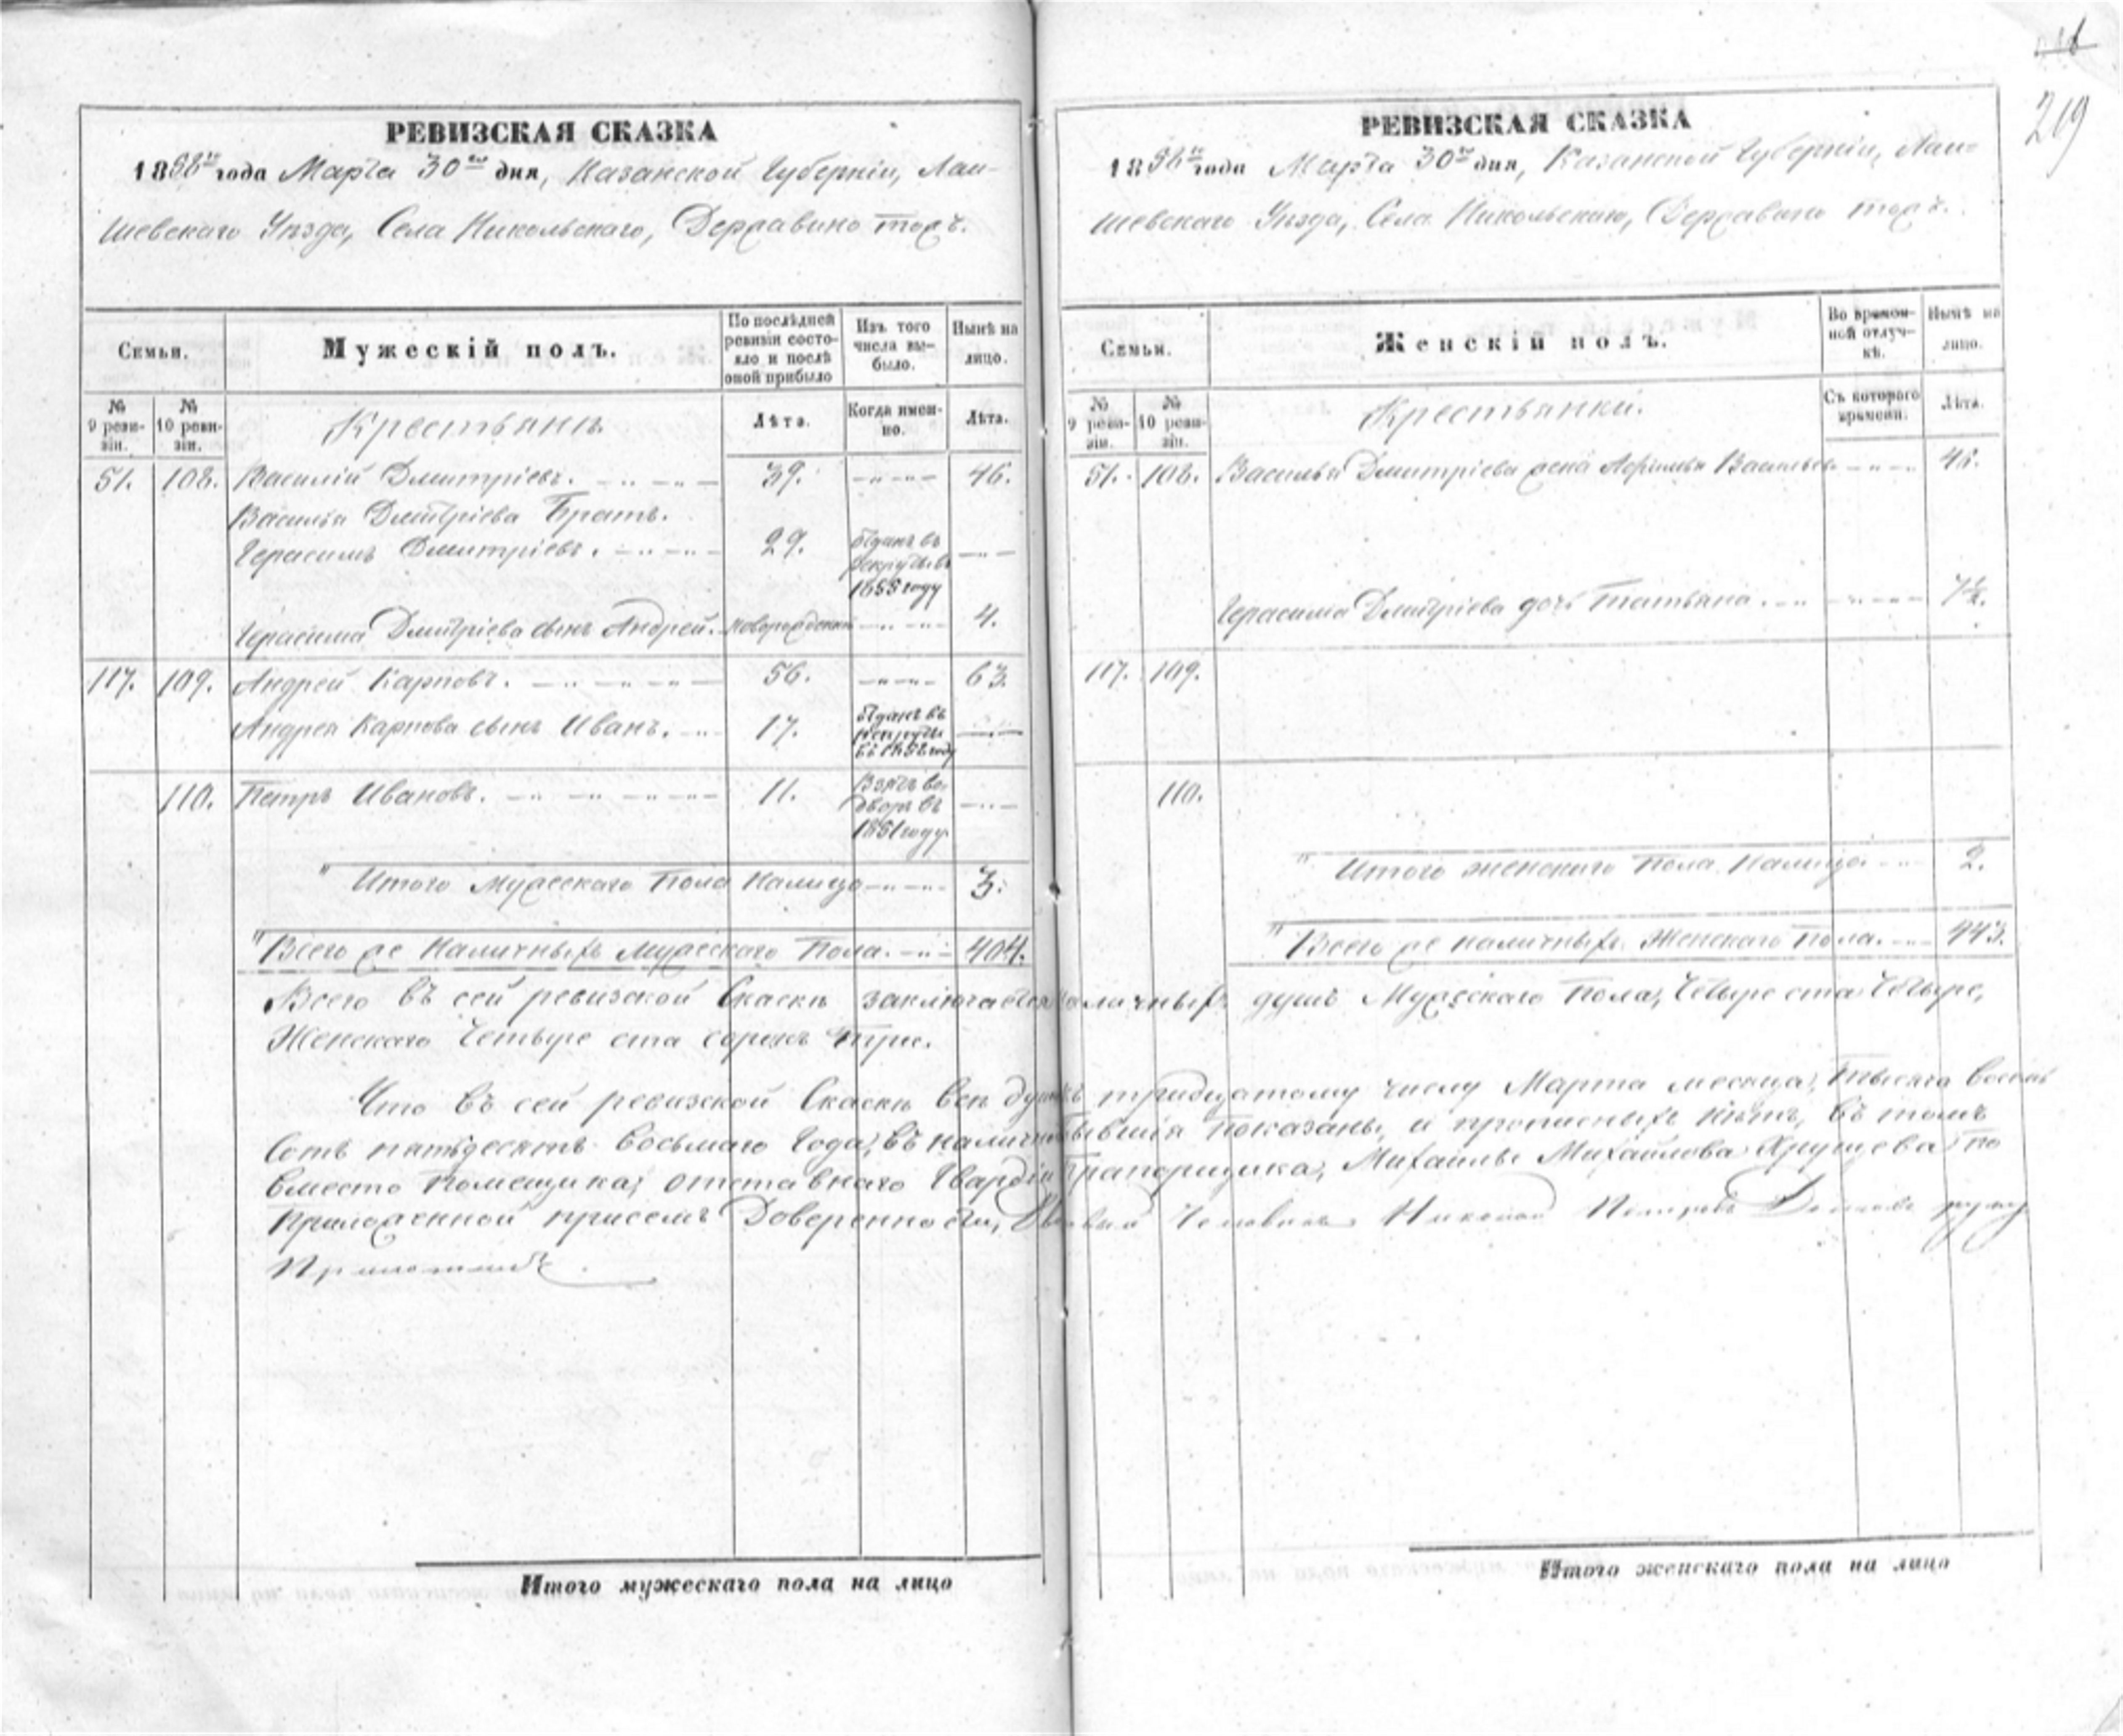 219
РЕВИЗСКАЯ СКАЗКА
1858го года Марта 30го дня, Казанской Губерніи, Лаи-
шевскаго Уѣзда, Села Никольскаго, Державино тожъ.
Семьи.
Мужескій полъ.
По послѣдней ревизіи состояло и послѣ оной прибыло
Изъ того числа выбыло.
Нынѣ на лицо.
№ 9 ревизіи.
№ 10 ревизіи.
Крестьянъ
Лѣта.
Когда именно.
Лѣта.
51. 108. Василій Дмитріевъ. 39. 46.
Василья Дмитріева Братъ.
Герасимъ Дмитріевъ. 29. Отданъ въ рекруты въ 1855 году
Герасима Дмитріева сынъ Андрей. новорожденн 4.
117. 109. Андрей Карповъ. 56. 63.
Андрея Карпова сынъ Иванъ. 17. Отданъ въ рекруты въ году
110. Петръ Ивановъ. 11. Взятъ во дворъ въ 1851 году
" Итого Мужескаго Пола Налицо 3.
" Всего же Наличныхъ Мужескаго Пола. 404.
РЕВИЗСКАЯ СКАЗКА
1858го года Марта 30го дня, Казанской Губерніи, Лаи-
шевскаго Уѣзда, Села Никольскаго, Державино тожъ.
Семьи.
Женскій полъ.
Во временной отлучкѣ.
Нынѣ на лицо.
№ 9 ревизіи.
№ 10 ревизіи.
Крестьянки.
Съ котораго времени.
Лѣта.
51. 108. Василья Дмитріева жена Васильева
Герасима Дмитріева дочь Татьяна.
117. 109.
110.
" Итого женскаго Пола Налицо 2.
" Всего же наличныхъ Женскаго пола. 443.
Всего въ сей ревизской Скаскѣ заключается наличныхъ душъ Мужескаго Пола, Четыре ста Четыре,
Женскаго Четыре ста сорокъ три.
Что въ сей ревизской Скаскѣ все душъ тридцатому числу Марта месяца, тысяча восемь
сотъ пятьдесятъ восьмаго Года, въ наличи бывшія Показаны, и прописныхъ нѣтъ, въ томъ
вместо Помещика, отставнаго Гвардіи Прапорщика, Михаилы Михайлова Хрущева по
приложенной присемъ Доверенности, Человекъ Николай Петровъ руку
Приложилъ.
Итого мужескаго пола на лицо
Итого женскаго пола на лицо